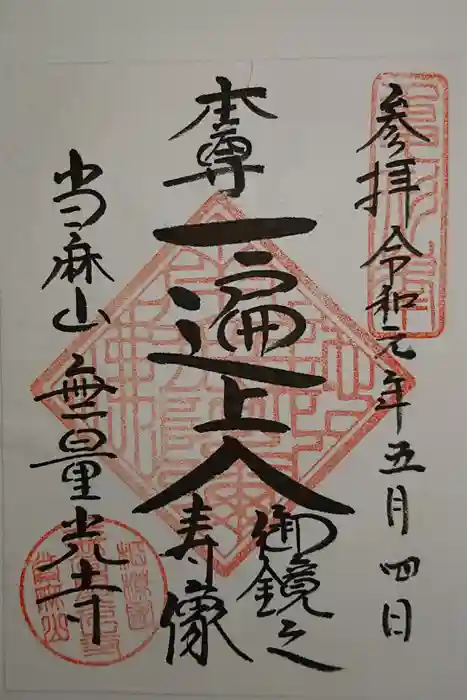 参拝令和元年五月四日
本尊
一遍上人
御鏡之
寿像
当麻山無量光寺